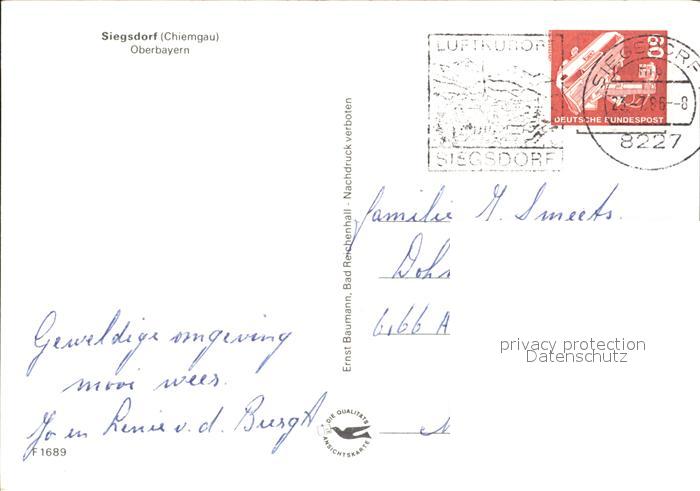 Siegsdorf (Chiemgau)
Oberbayern
LUFTKURORT
SIEGSDORF
80
DEUTSCHE BUNDESPOST
SIEGSDORF
23.-7.86--8
8227
Ernst Baumann, Bad Reichenhall - Nachdruck verboten
familie M. Smeets.
Doh
6166 A
privacy protection
Datenschutz
Geweldige omgeving
mooi weer.
Jo en Lenie v. d. Burgh
F 1689
DIE QUALITÄTS
ANSICHTSKARTE